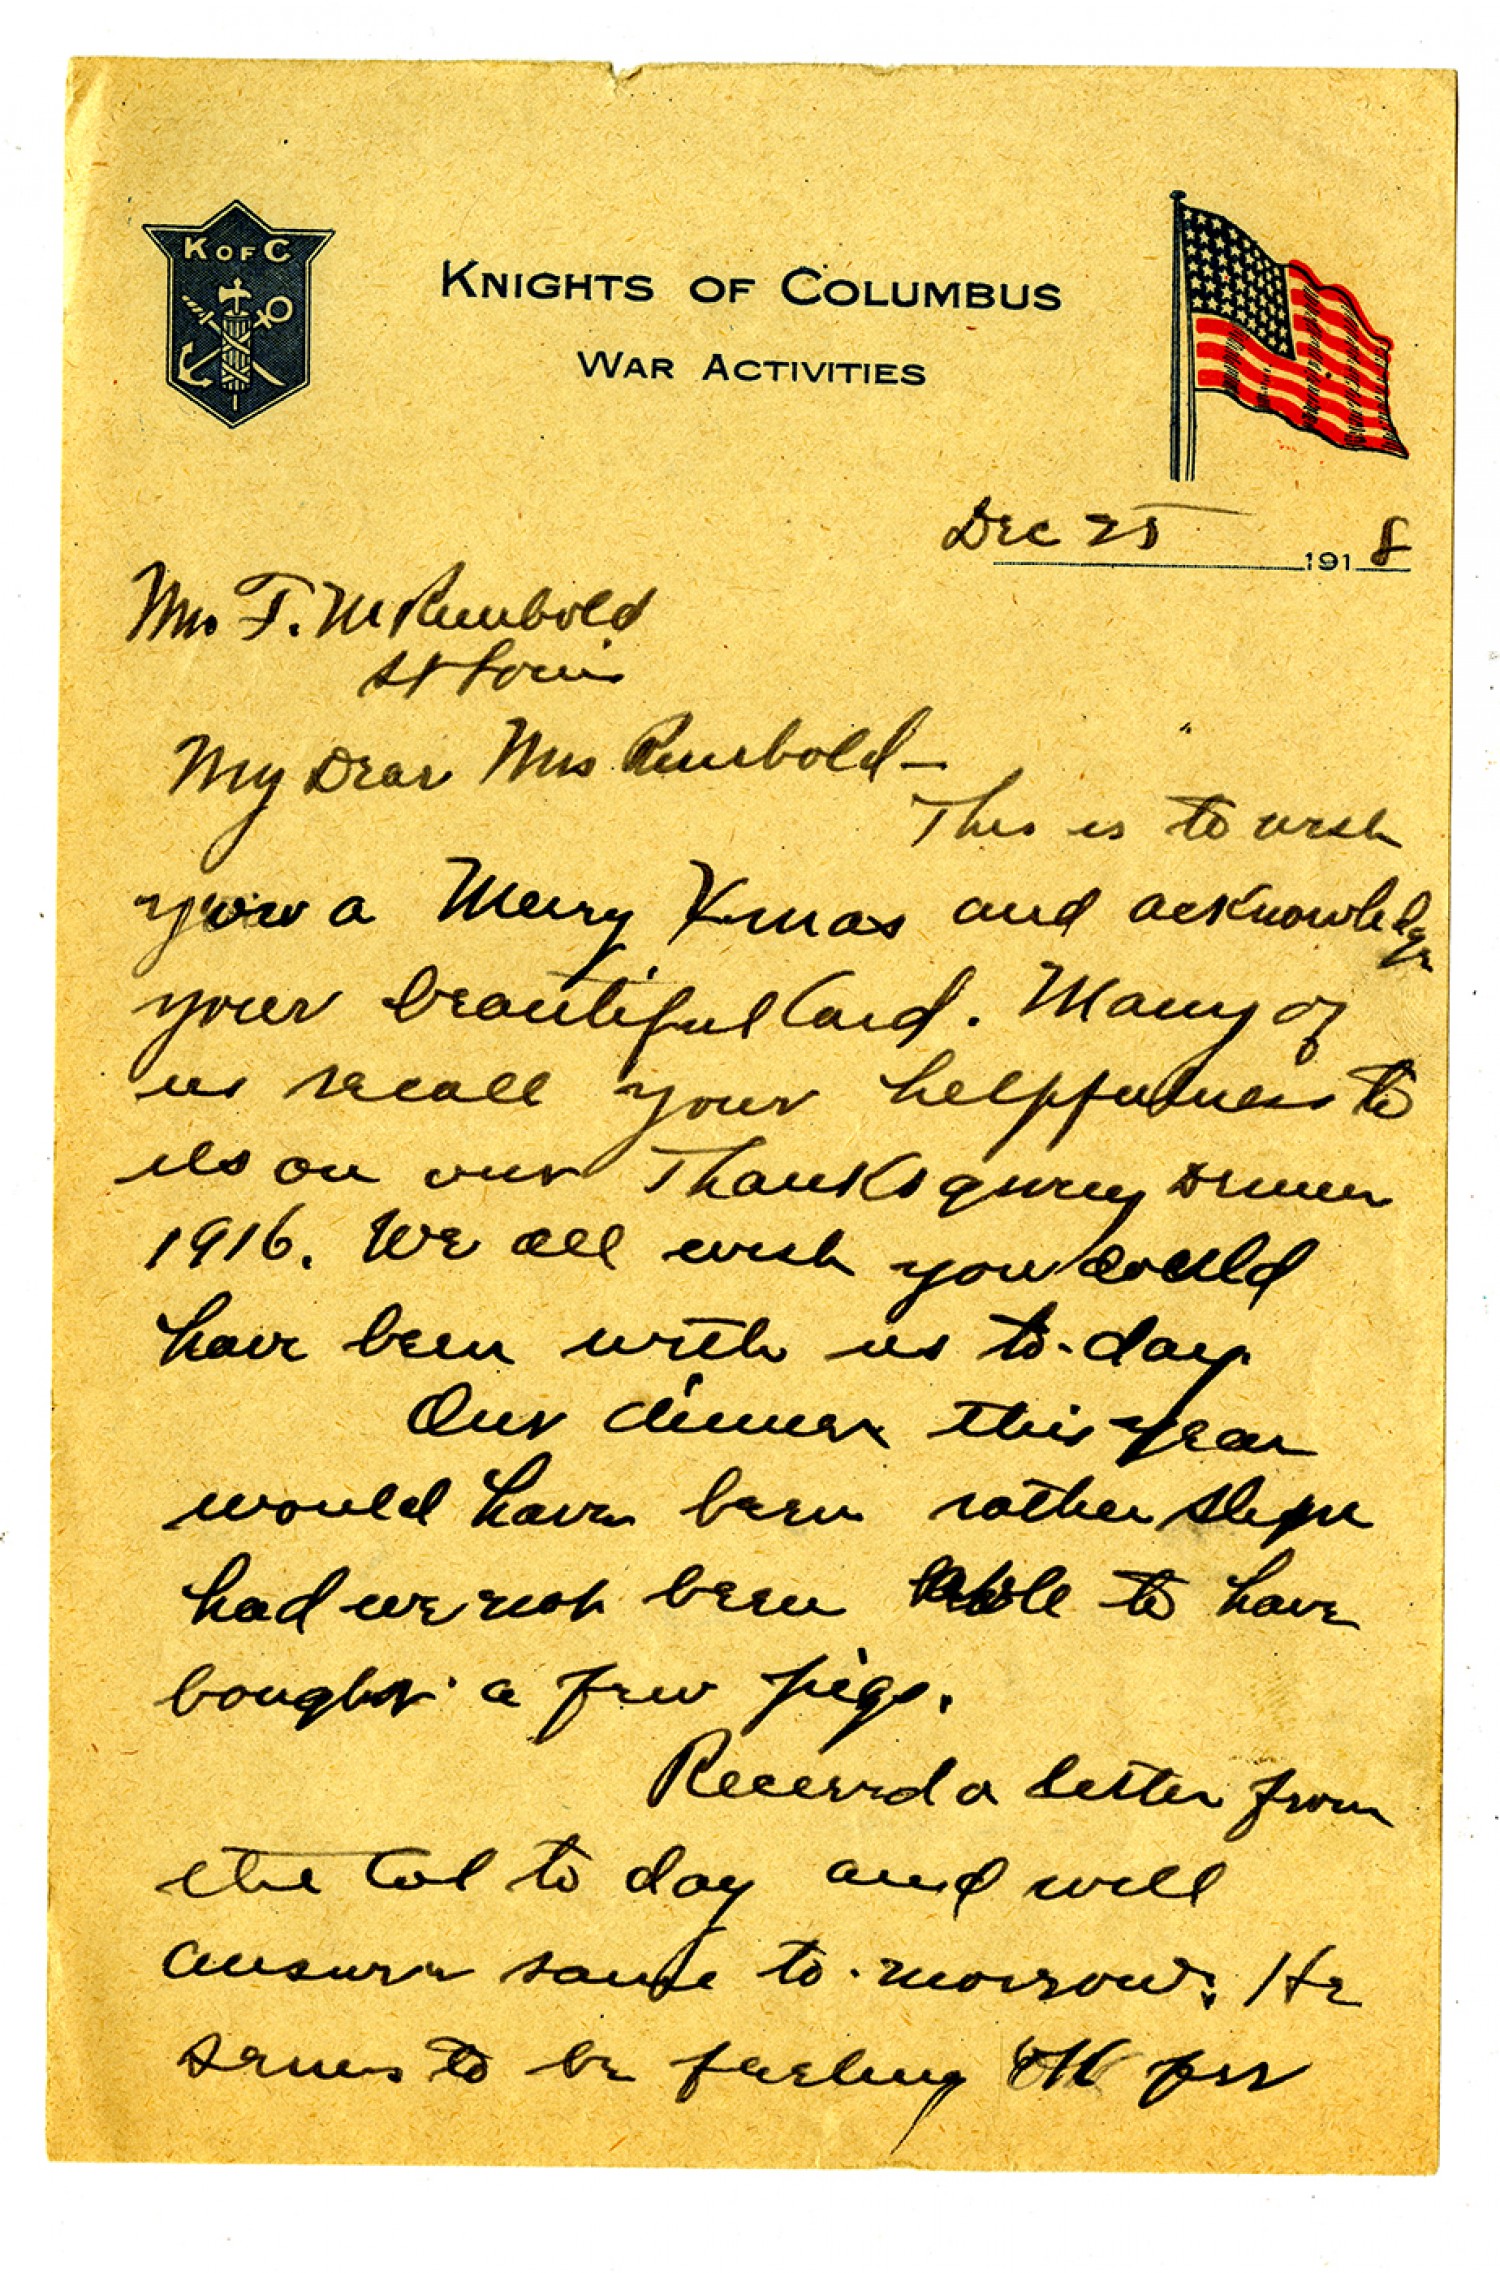 K OF C
KNIGHTS OF COLUMBUS
WAR ACTIVITIES
Dec 25 1918
Mrs F. M Rumbold
St Louis
My Dear Mrs Rumbold—
This is to wish
you a Merry Xmas and acknowledge
your beautiful Card. Many of
us recall your helpfulness to
us on our Thanksgiving dinner
1916. We all wish you could
have been with us to-day.
Our dinner this year
would have been rather
had we not been able to have
bought a few pigs.
Received a letter from
the Col to day and will
answer same to-morrow. He
seems to be feeling OK per